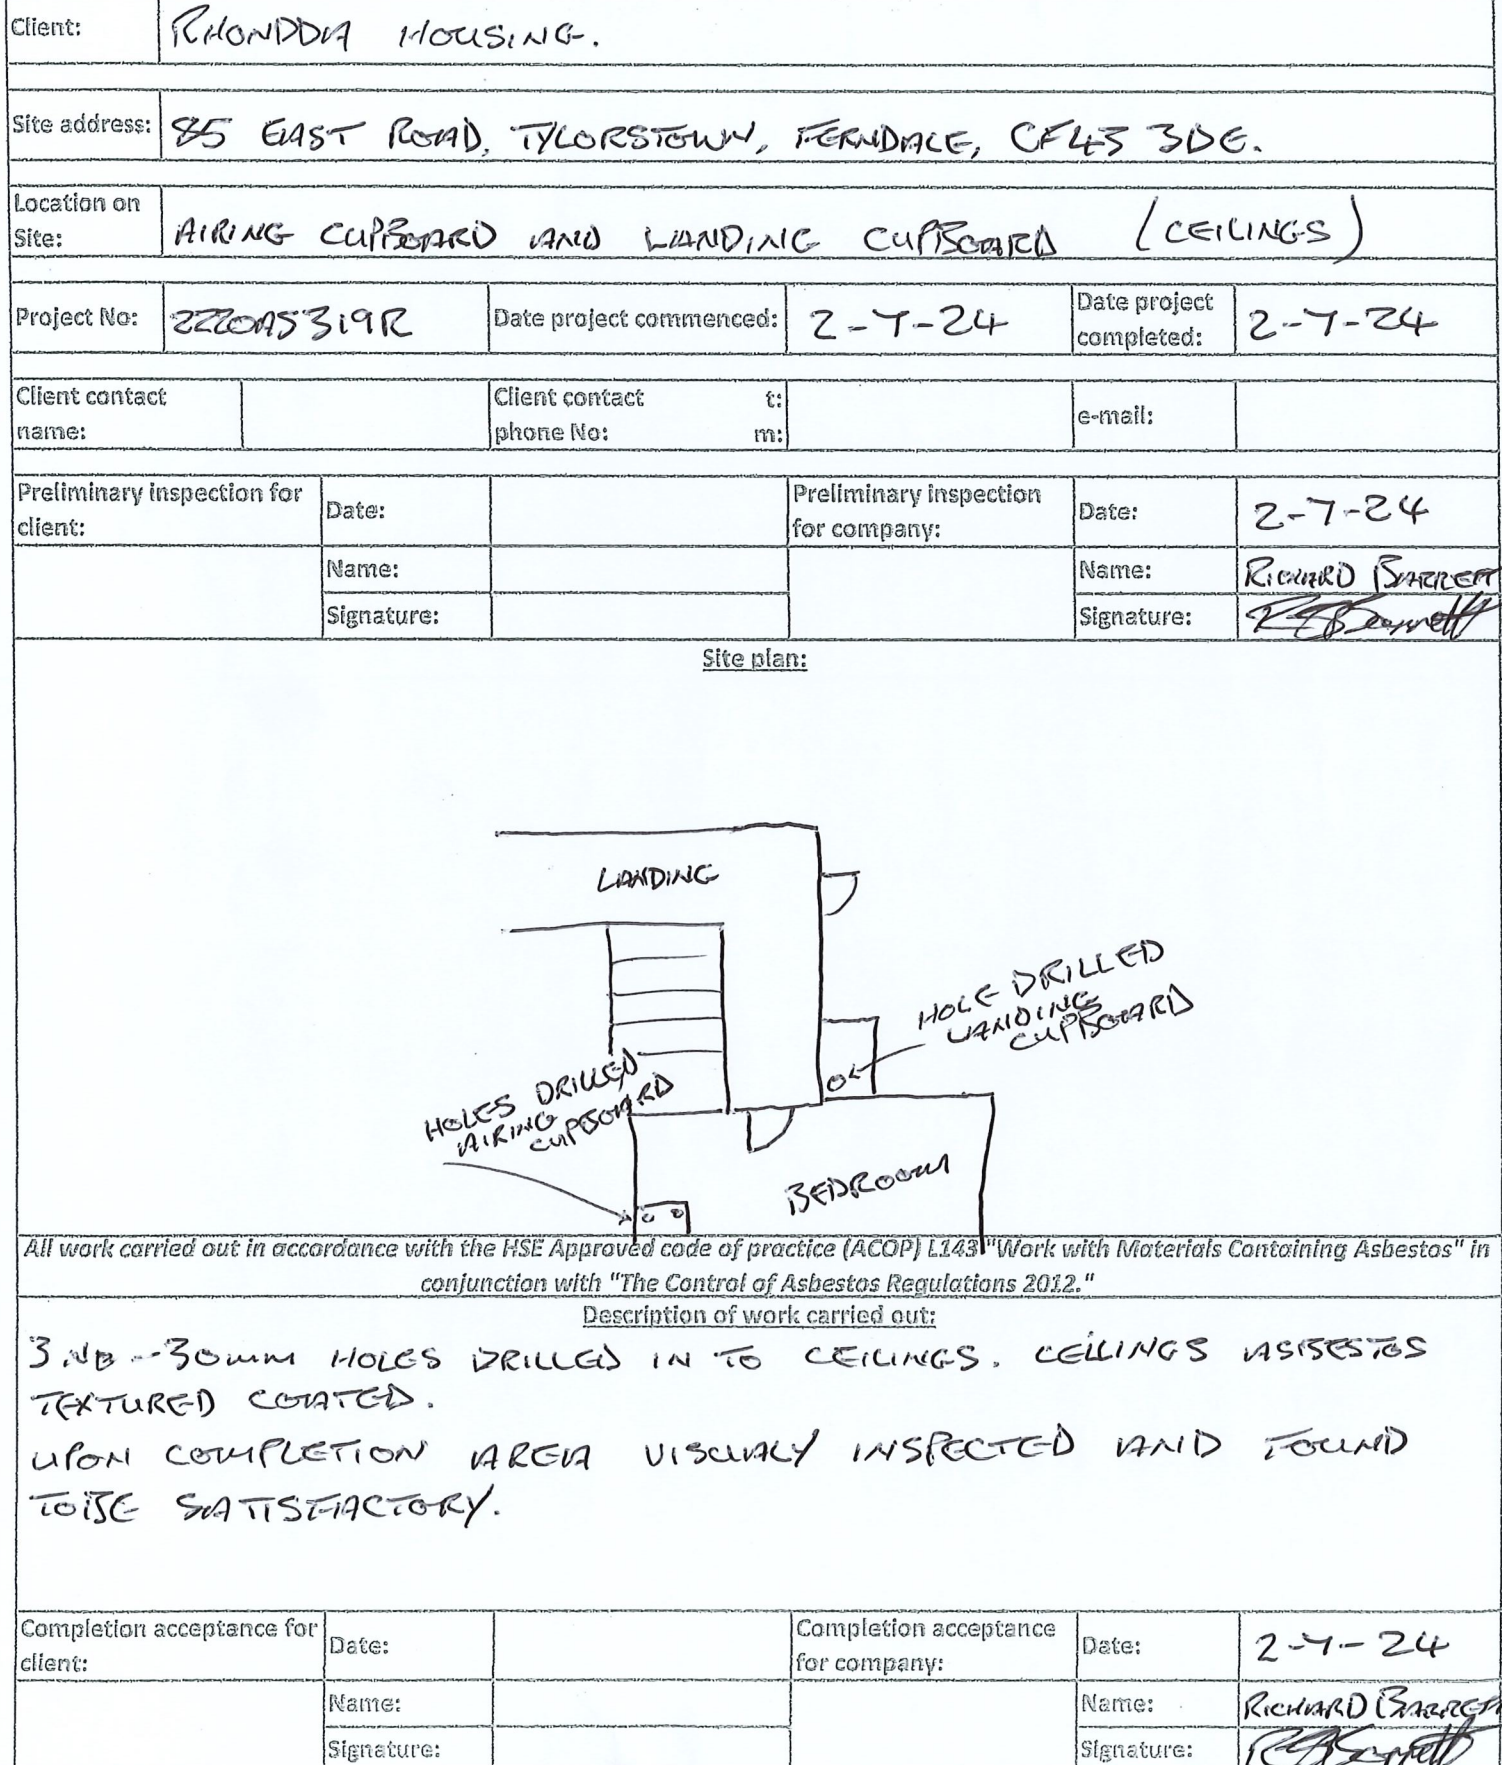 Client: RHONDDA HOUSING.
Site address: 85 EAST ROAD, TYLORSTOWN, FERNDALE, CF43 3DE.
Location on Site: AIRING CUPBOARD AND LANDING CUPBOARD (CEILINGS)
Project No: 2220AS319R Date project commenced: 2-7-24 Date project completed: 2-7-24
Client contact name: Client contact phone No: t: m: e-mail:
Preliminary inspection for client: Date: Preliminary inspection for company: Date: 2-7-24
Name: Name: RICHARD BARRETT
Signature: Signature:
Site plan:
LANDING
HOLE DRILLED
LANDING
CUPBOARD
HOLES DRILLED
AIRING
CUPBOARD
BEDROOM
All work carried out in accordance with the HSE Approved code of practice (ACOP) L143 "Work with Materials Containing Asbestos" in
conjunction with "The Control of Asbestos Regulations 2012."
Description of work carried out:
3 NO - 30mm HOLES DRILLED IN TO CEILINGS. CEILINGS ASBESTOS
TEXTURED COATED.
UPON COMPLETION AREA VISUALY INSPECTED AND FOUND
TO BE SATISFACTORY.
Completion acceptance for client: Date: Completion acceptance for company: Date: 2-7-24
Name: Name: RICHARD BARRETT
Signature: Signature: